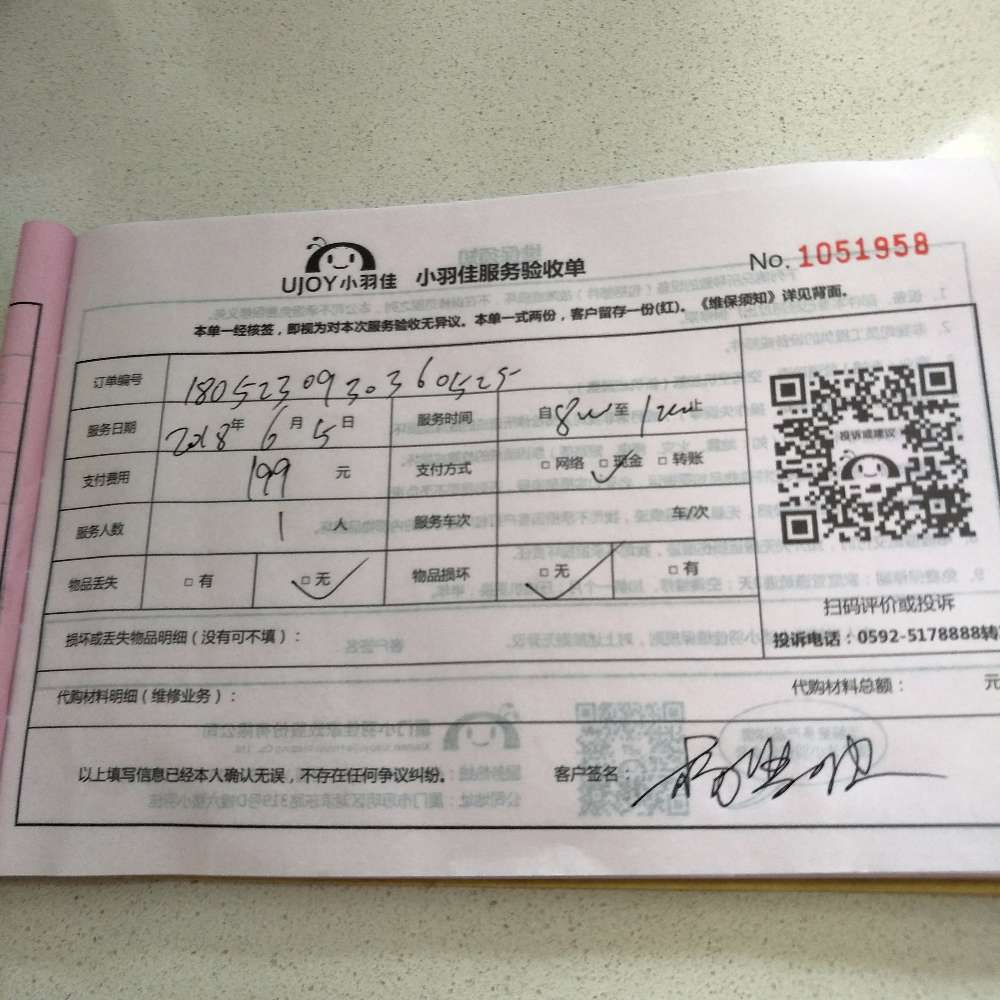 UJOY小羽佳 小羽佳服务验收单 No. 1051958
本单一经核签，即视为对本次服务验收无异议。本单一式两份，客户留存一份(红)。《维保须知》详见背面。
订单编号 180523093036 0525
服务日期 2018年 6月 5日 服务时间 自 8 至 12 止
支付费用 199 元 支付方式 □ 网络 □ 现金 □ 转账
服务人数 1 人 服务车次 车/次
物品丢失 □ 有 □ 无 物品损坏 □ 无 □ 有
投诉或建议
扫码评价或投诉
投诉电话：0592-5178888转
损坏或丢失物品明细（没有可不填）：
代购材料明细（维修业务）： 代购材料总额： 元
以上填写信息已经本人确认无误，不存在任何争议纠纷。 客户签名：